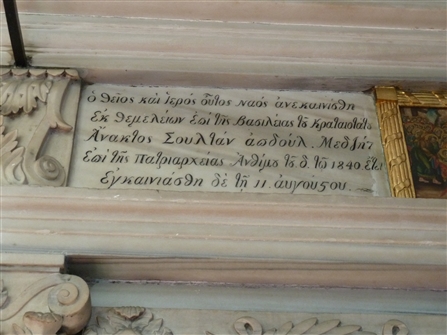 ὁ θεῖος καὶ ἱερὸς οὗτος ναὸς ἀνεκαινίσθη
ἐκ θεμελείων ἐπὶ τῆς Βασιλείας τȣ͂ Κραταιοτάτȣ
Ἄνακτος Σουλτάν ἀπδούλ. Μεδζήτ
ἐπὶ τῆς Πατριαρχείας Ἀνθίμȣ τȣ͂ δ. τῷ 1840 ἔτει
ἐγκαινιάσθη δὲ τῇ 11 αὐγούϛου.